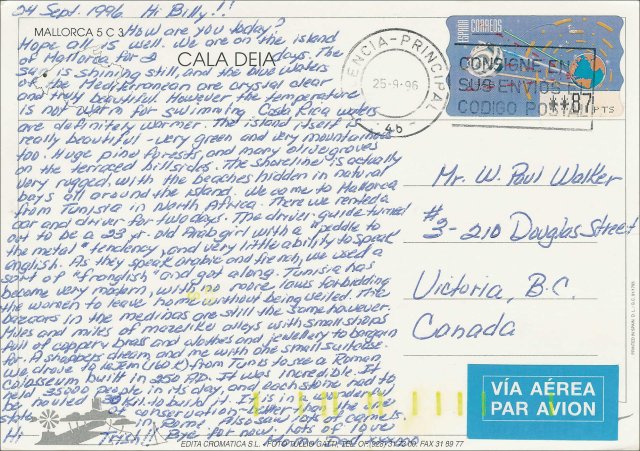 24 Sept. 1996. Hi Billy!!
MALLORCA 5 C 3
How are you today?
Hope all is well. We are on the island
of Mallorca for 2 days. The
CALA DEIA
sun is shining still, and the blue waters
of the Mediterranean are crystal clear
and very beautiful. However the temperature
is not warm for swimming. Costa Rica waters
are definitely warmer. The island itself is
really beautiful - very green and very mountainous
too. Huge pine forests, and many olive groves
on the terraced hillsides. The shoreline is actually
very rugged, with the beaches hidden in natural
bays all around the island. We came to Mallorca
from Tunisia in North Africa. There we rented a
car and driver for two days. The driver-guide turned
out to be a 23 yr. old Arab girl with a "peddle to
the metal" tendency, and very little ability to speak
english. As they speak arabic and french, we used a
sort of "franglish" and got along. Tunisia has
become very modern, with no more laws forbidding
the women to leave home without being veiled. The
bazaars in the medinas are still the same however.
Miles and miles of mazelike alleys with small shops
full of coppery brass and clothes and jewellery to bargain
for. A shoppers dream and me with one small suitcase.
We drove to El Jem (160 K) from Tunis to see a Roman
Colosseum built in 250 AD. It was incredible. It
held 35000 people in its day, and each stone had to
be moved 30 kil. to build it. It is in a wonderful
state of conservation - better than the one
in Rome. Also saw lots of camels.
Hi Trish!! Bye for now. Lots of love
Mom & Dad xxxooo
VALENCIA-PRINCIPAL
25-9-96
46
ESPAÑA CORREOS
CONSIGNE EN
SUS ENVIOS EL
CODIGO POSTAL
**87
PTS
Mr. W. Paul Walker
#3-210 Douglas Street
Victoria, B.C.
Canada
VÍA AÉREA
PAR AVION
EDITA CROMATICA S.L. - FOTO TULLIO GATTI, TEL. OF. (928) 31 73 00. FAX 31 89 77